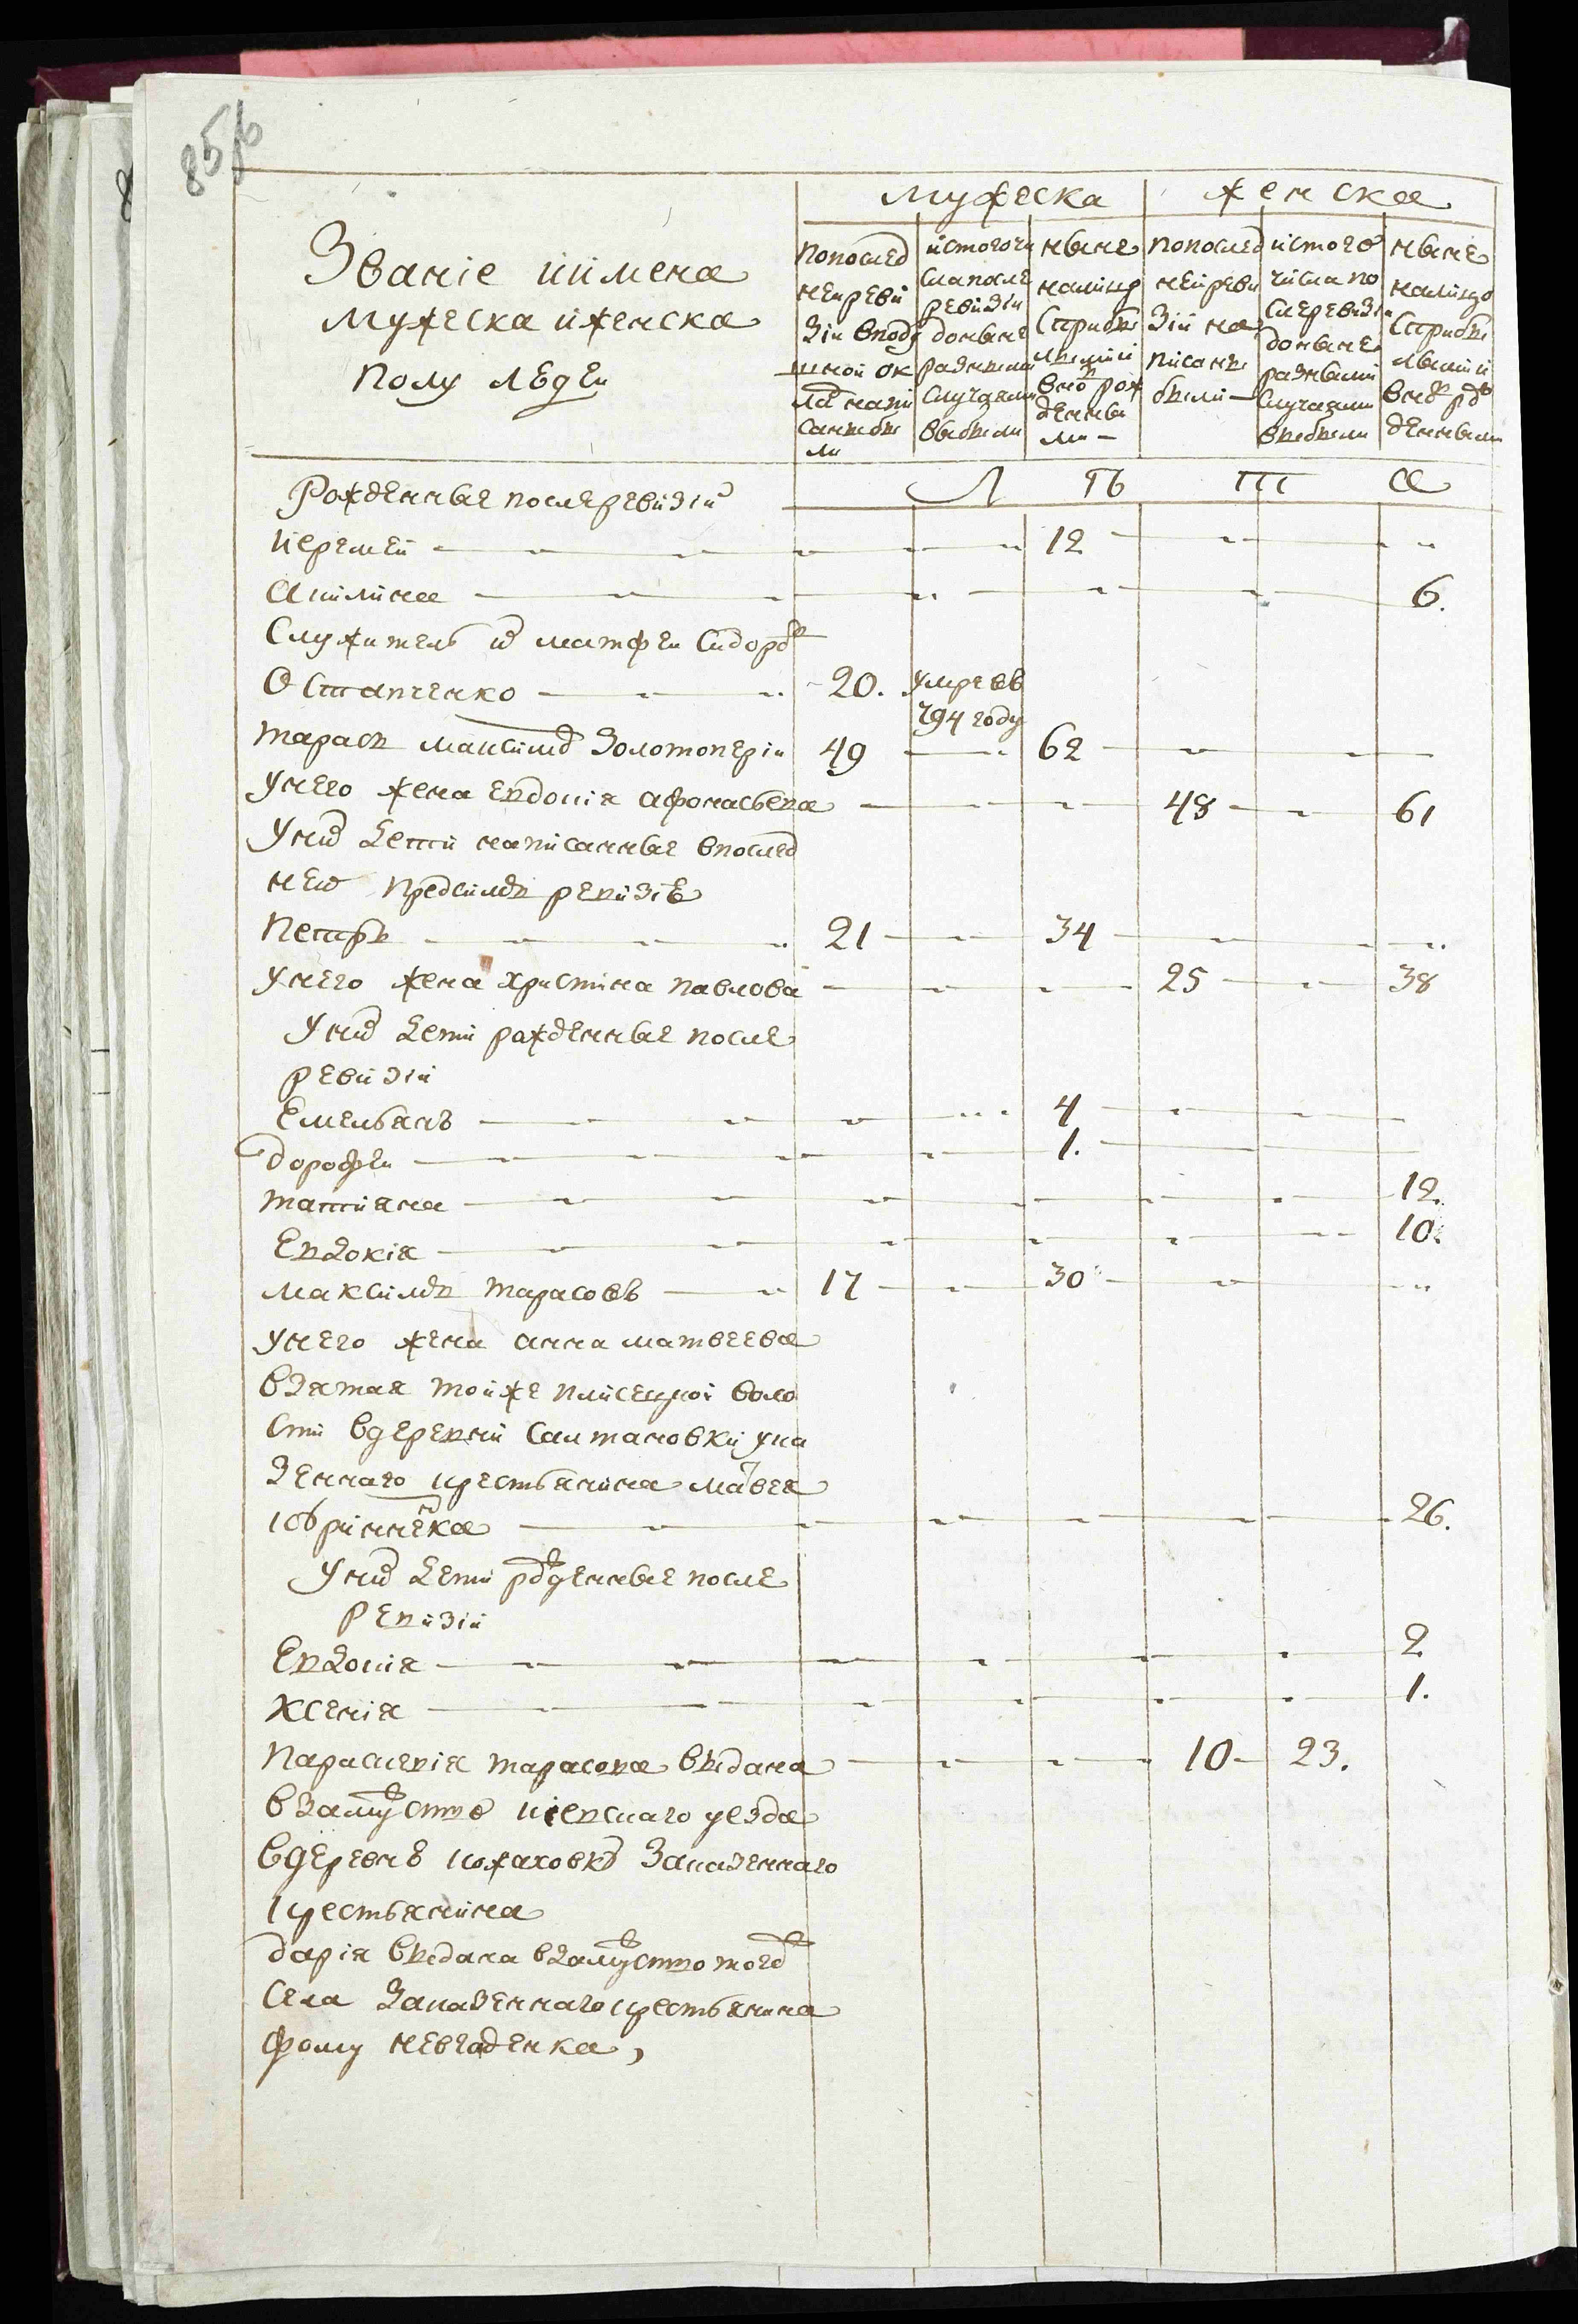 85б
мужеска женска
Званіе иимена
мужеска иженска
полу лѣдеи
попослед
неиреви
зіи вподу
шной ок
ладъ напи
санные бы
ли
истогочи
слапосле
ревизіи
доныне
разными
случаями
выбыли
ныне
налицо
сприбы
лыми и
вно рож
денны
ми -
попослед
неиреви
зіи на
писаны
были
истого
числа по
слеревизіи
доныне
разными
случаями
выбыли
ныне
налицо
сприбы
лыми и
вно рож
денными
Л Ѣ Т А
Рожденные послеревизіи
иеремей 12
акилина 6.
Служитель матфеи Сидоровъ
Остапченко 20. умре въ
794 году
тарасъ максимовъ Золотоперіи 49 62
унего жена евдокія афонасьева 48 61
уних дети написанные впослед
неи предсимъ ревизіе
петръ 21 34
унего жена христина павлова 25 38
уних дети рожденные после
ревизіи
Емельянъ 4
дорофеи 1.
татияна 12.
Евдокія 10.
максимъ тарасовъ 17 30
унего жена анна матвеева
взятая тойже плисецкой воло
сти вдеревни салтановки ука
зеннаго крестьянина матвея
26.
уних дети рожденные после
ревизіи
Евдокія 2
ксенія 1.
параскевія тарасова выдана 10 23.
взамужство кіевскаго уезда
вдеревне кожаховку заказеннаго
крестьянина
дарія выдана взамужство тогож
села заказеннаго крестьянина
фому неваденка,